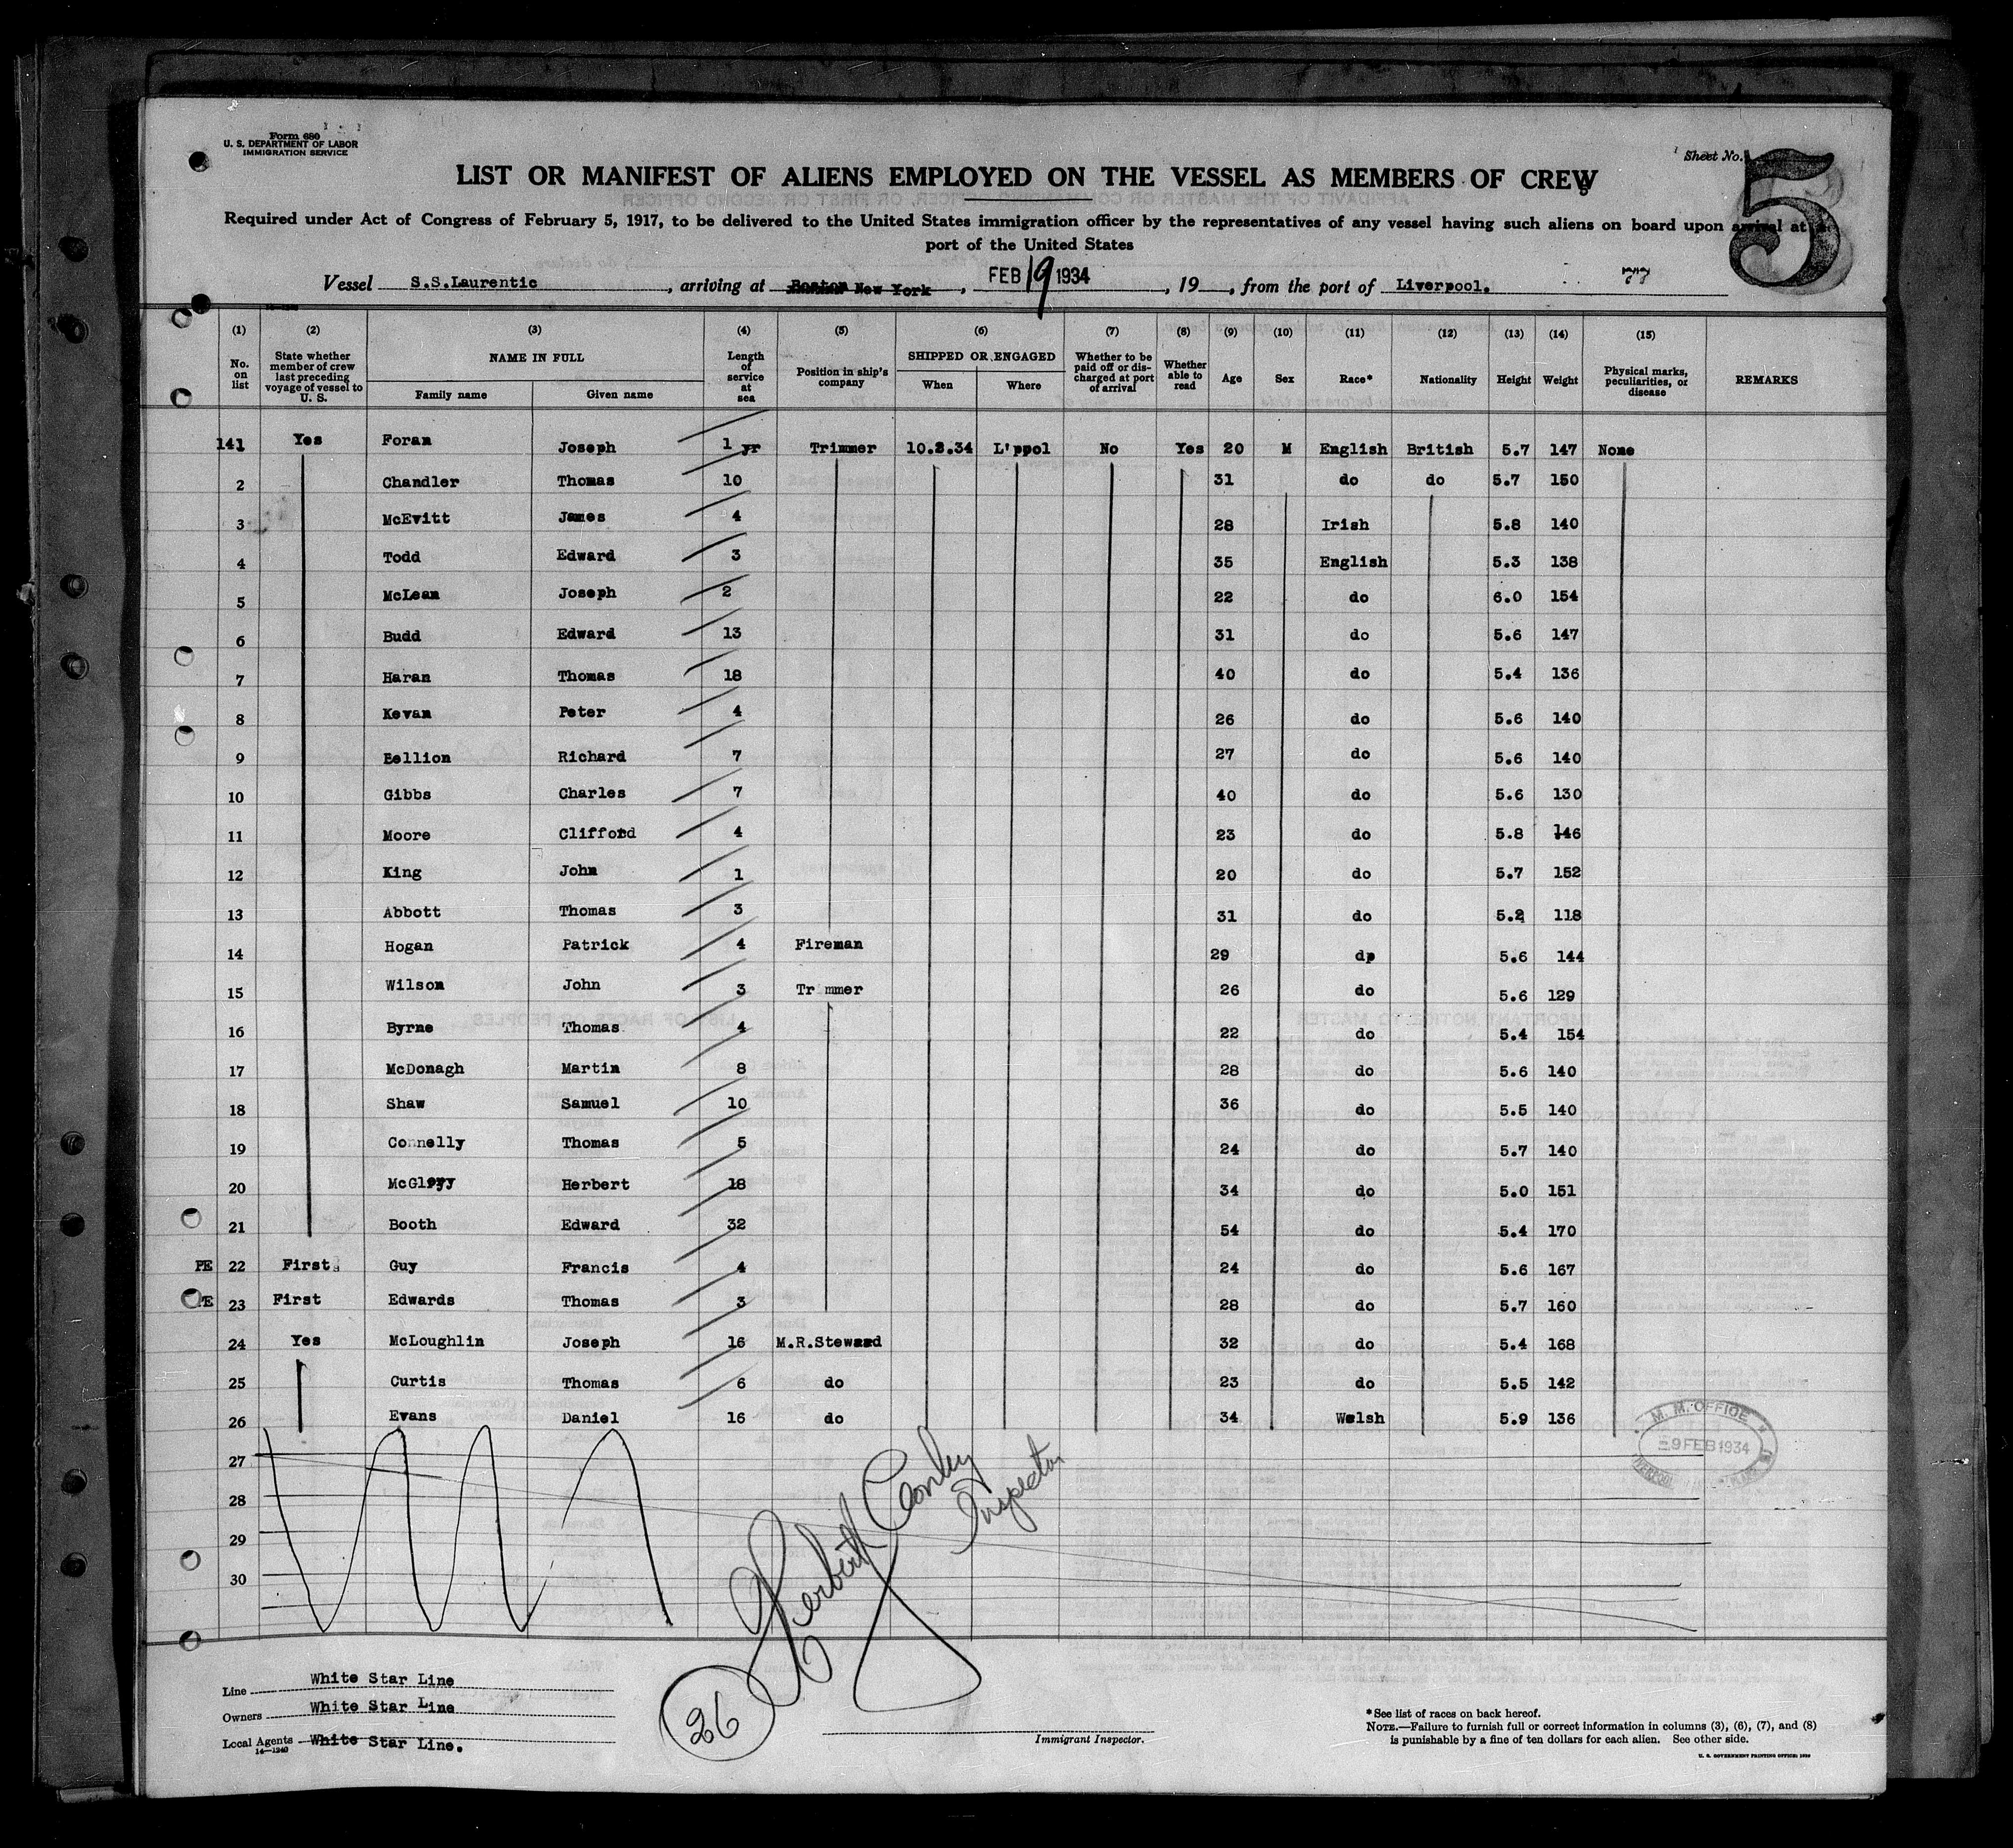 Form 680
U. S. DEPARTMENT OF LABOR
IMMIGRATION SERVICE
Sheet No. 5
LIST OR MANIFEST OF ALIENS EMPLOYED ON THE VESSEL AS MEMBERS OF CREW
Required under Act of Congress of February 5, 1917, to be delivered to the United States immigration officer by the representatives of any vessel having such aliens on board upon arrival at a
port of the United States
Vessel S.S.Laurentic, arriving at Boston New York, FEB 19 1934, 19 , from the port of Liverpool. 77
(1) (2) (3) (4) (5) (6) (7) (8) (9) (10) (11) (12) (13) (14) (15)
No. on list State whether member of crew last preceding voyage of vessel to U. S. NAME IN FULL Family name Given name Length of service at sea Position in ship's company SHIPPED OR ENGAGED When Where Whether to be paid off or discharged at port of arrival Whether able to read Age Sex Race* Nationality Height Weight Physical marks, peculiarities, or disease REMARKS
141 Yes Foran Joseph 1 yr Trimmer 10.2.34 L'ppol No Yes 20 M English British 5.7 147 None
2 Chandler Thomas 10 31 do do 5.7 150
3 McEvitt James 4 28 Irish 5.8 140
4 Todd Edward 3 35 English 5.3 138
5 McLean Joseph 2 22 do 6.0 154
6 Budd Edward 13 31 do 5.6 147
7 Haran Thomas 18 40 do 5.4 136
8 Kevan Peter 4 26 do 5.6 140
9 Bellion Richard 7 27 do 5.6 140
10 Gibbs Charles 7 40 do 5.6 130
11 Moore Clifford 4 23 do 5.8 146
12 King John 1 20 do 5.7 152
13 Abbott Thomas 3 31 do 5.2 118
14 Hogan Patrick 4 Fireman 29 do 5.6 144
15 Wilson John 3 Tr mmer 26 do 5.6 129
16 Byrne Thomas 4 22 do 5.4 154
17 McDonagh Martin 8 28 do 5.6 140
18 Shaw Samuel 10 36 do 5.5 140
19 Connelly Thomas 5 24 do 5.7 140
20 Herbert 18 34 do 5.0 151
21 Booth Edward 32 54 do 5.4 170
PE 22 First Guy Francis 4 24 do 5.6 167
PE 23 First Edwards Thomas 3 28 do 5.7 160
24 Yes McLoughlin Joseph 16 M.R.Steward 32 do 5.4 168
25 Curtis Thomas 6 do 23 do 5.5 142
26 Evans Daniel 16 do 34 Welsh 5.9 136
27
28
29
30
M. M. OFFICE
9 FEB 1934
LIVERPOOL
Herbert Conley
Inspector
26
Line White Star Line
Owners White Star Line
Local Agents White Star Line.
14—1240
Immigrant Inspector.
*See list of races on back hereof.
NOTE.—Failure to furnish full or correct information in columns (3), (6), (7), and (8)
is punishable by a fine of ten dollars for each alien. See other side.